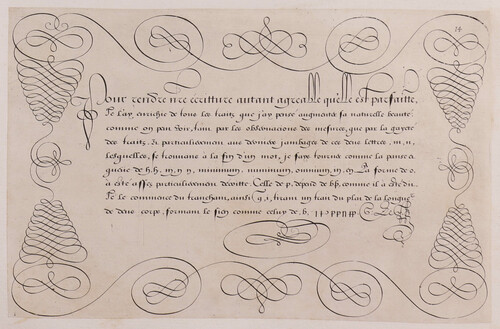 14
Pour rendre n're écritture autant agreable quelle est parfaitte,
Je l'ay enrichie de tous les traitz que j'ay pensé augmenter sa naturelle beauté.
comme on peu voir, tant par les observacions des mesures, que par la gayeté
des traitz. & particulierement aux derniers jambages de ces deux lettres, m, n,
lesquelles, se trouvans à la fin d'un mot, je fays tourner comme la panse et
queüe de h. h, m, y, n, minimum, nummum, omnium, m, ey. La forme de o.
a esté assez particulierement décritte. Celle de p, dépend de bb, comme il a esté du.
Je le commence du tranchant, ainsi q, i, tirant un trait du plat de la longueur
de deux corps, formant le sien comme celuy de, b,